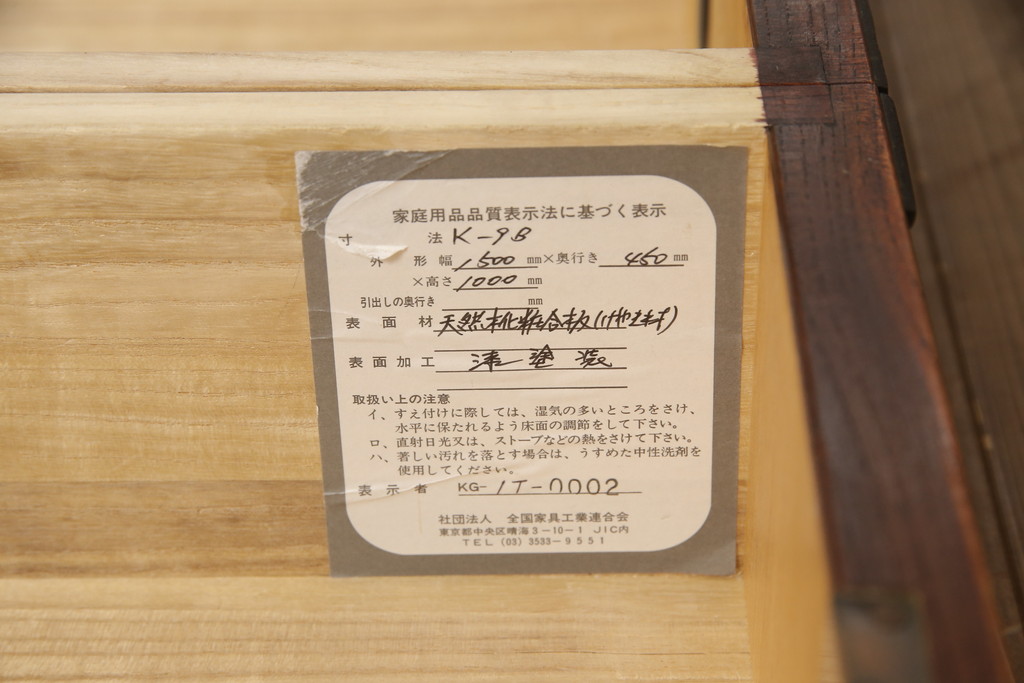 家庭用品品質表示法に基づく表示
寸 法 K-9B
外 形 幅 1500 mm×奥行き 450 mm
×高さ 1000 mm
引出しの奥行き mm
表 面 材 天然木化粧合板(けやき材)
表面加工 漆塗装
取扱い上の注意
イ、すえ付けに際しては、湿気の多いところをさけ、
水平に保たれるよう床面の調節をして下さい。
ロ、直射日光又は、ストーブなどの熱をさけて下さい。
ハ、著しい汚れを落とす場合は、うすめた中性洗剤を
使用してください。
表 示 者 KG-IT-0002
社団法人 全国家具工業連合会
東京都中央区晴海3-10-1 JIC内
TEL (03) 3533-9551